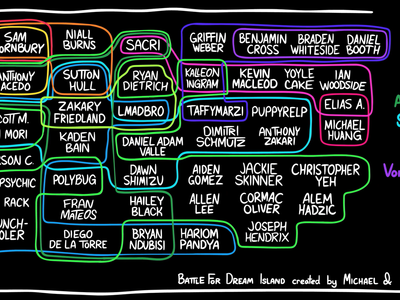 SAM
NIALL
BURNS
SACRI
GRIFFIN
WEBER
BENJAMIN
CROSS
BRADEN
WHITESIDE
DANIEL
BOOTH
ORNBURY
ANTHONY
ACEDO
SUTTON
HULL
RYAN
DIETRICH
KALLEON
INGRAM
KEVIN
MACLEOD
YOYLE
CAKE
IAN
WOODSIDE
ZAKARY
FRIEDLAND
LMADBRO
TAFFYMARZI
PUPPYRELP
ELIAS A.
OTT M.
MORI
KADEN
BAIN
DANIEL ADAM
VALLE
DIMITRI
SCHMUTZ
ANTHONY
ZAKARI
MICHAEL
HUANG
RSON C.
PSYCHIC
POLYBUG
DAWN
SHIMIZU
AIDEN
GOMEZ
JACKIE
SKINNER
CHRISTOPHER
YEH
RACK
FRAN
MATEOS
HAILEY
BLACK
ALLEN
LEE
CORMAC
OLIVER
ALEM
HADZIC
UNCH-
OLER
DIEGO
DE LA TORRE
BRYAN
NDUBISI
HARIOM
PANDYA
JOSEPH
HENDRIX
BATTLE FOR DREAM ISLAND CREATED BY MICHAEL &